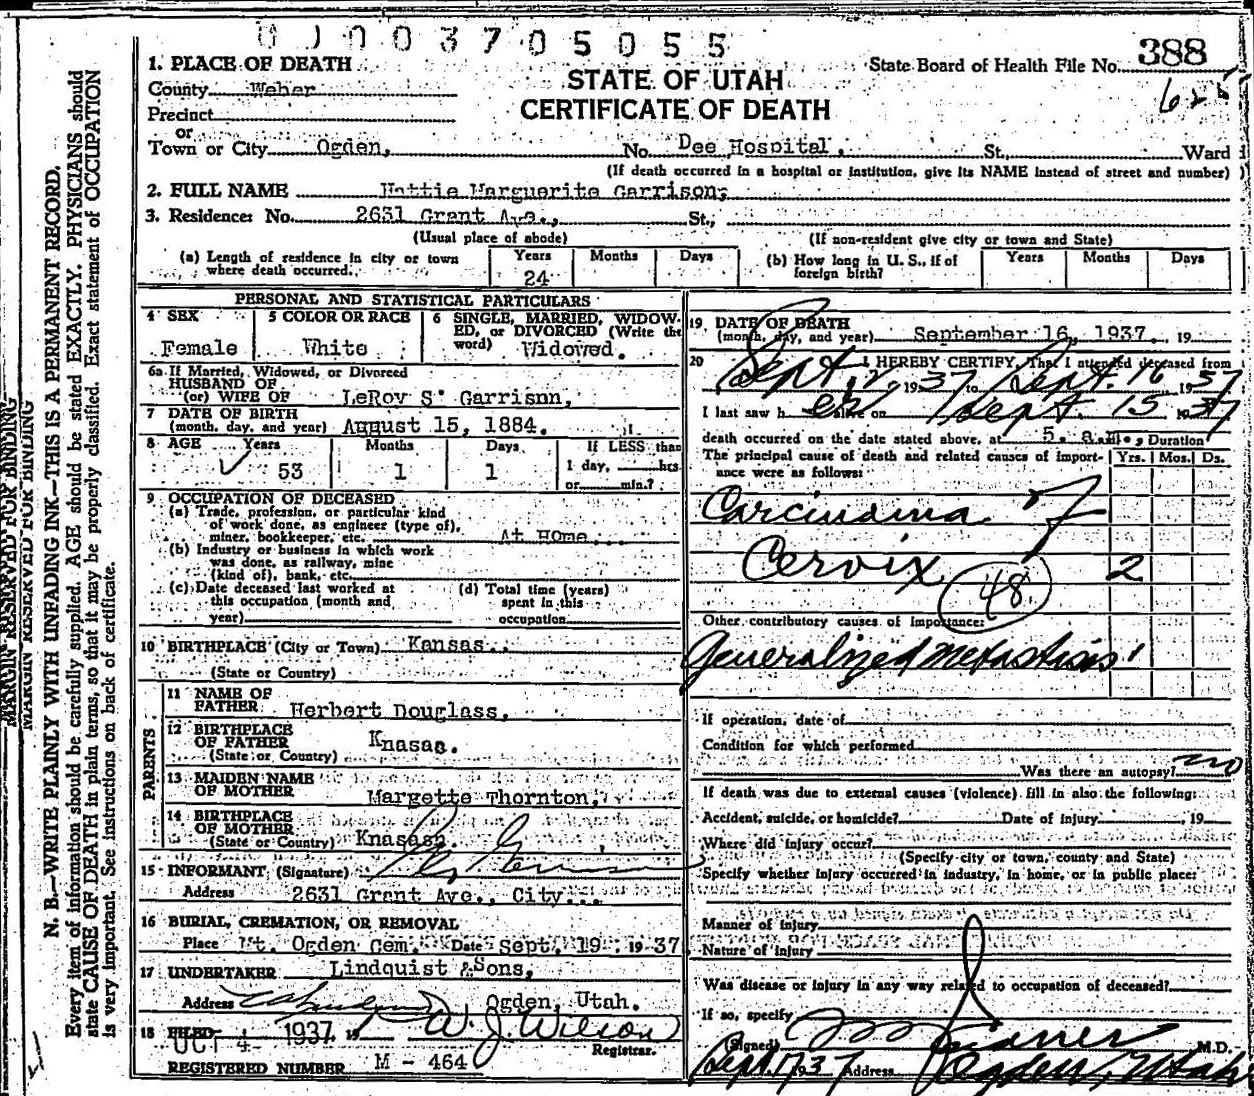 0 J 0 0 3 7 0 5 0 5 5
388
State Board of Health File No.
625
STATE OF UTAH
CERTIFICATE OF DEATH
1. PLACE OF DEATH
County Weber
Precinct
or
Town or City Ogden, No. Dee Hospital, St., Ward
(If death occurred in a hospital or institution, give its NAME instead of street and number)
2. FULL NAME Hattie Marguerite Garrison,
3. Residence: No. 2631 Grant Ave., St.,
(Usual place of abode) (If non-resident give city or town and State)
(a) Length of residence in city or town where death occurred. Years 24 Months Days
(b) How long in U. S., if of foreign birth? Years Months Days
PERSONAL AND STATISTICAL PARTICULARS
4 SEX Female
5 COLOR OR RACE White
6 SINGLE, MARRIED, WIDOWED, or DIVORCED (Write the word) Widowed.
6a If Married, Widowed, or Divorced
HUSBAND OF
(or) WIFE OF LeRoy S. Garrisnn,
7 DATE OF BIRTH
(month, day, and year) August 15, 1884.
8 AGE Years 53 Months 1 Days 1 If LESS than 1 day, hrs. or min.?
9 OCCUPATION OF DECEASED
(a) Trade, profession, or particular kind
of work done, as engineer (type of),
miner, bookkeeper, etc. At Home
(b) Industry or business in which work
was done, as railway, mine
(kind of), bank, etc.
(c) Date deceased last worked at
this occupation (month and
year)
(d) Total time (years)
spent in this
occupation
10 BIRTHPLACE (City or Town) Kansas.
(State or Country)
PARENTS
11 NAME OF
FATHER Herbert Douglass,
12 BIRTHPLACE
OF FATHER Knasas.
(State or Country)
13 MAIDEN NAME
OF MOTHER Margette Thornton,
14 BIRTHPLACE
OF MOTHER
(State or Country) Knasasn.
15 INFORMANT (Signature)
Address 2631 Grant Ave., City.
16 BURIAL, CREMATION, OR REMOVAL
Place Mt. Ogden Cem. Date Sept. 19 1937
17 UNDERTAKER Lindquist &Sons,
Address Ogden, Utah.
18 FILED OCT 4 - 1937, 19 W. J. Wilson
Registrar.
REGISTERED NUMBER M - 464
19 DATE OF DEATH
(month, day, and year) September 16, 1937. , 19
20 I HEREBY CERTIFY, That I attended deceased from
Sept. 2, 1937 to Sept. 16 1937
I last saw her alive on Sept. 15 1937
death occurred on the date stated above, at 5. a.m., Duration
The principal cause of death and related causes of importance were as follows: Yrs. Mos. Ds.
Carcinoma of
Cervix 2
48
Other contributory causes of importance:
Generalized metastasis
If operation, date of
Condition for which performed
Was there an autopsy? no
If death was due to external causes (violence) fill in also the following:
Accident, suicide, or homicide? Date of injury , 19
Where did injury occur?
(Specify city or town, county and State)
Specify whether injury occurred in industry, in home, or in public place:
Manner of injury
Nature of injury
Was disease or injury in any way related to occupation of deceased?
If so, specify
(Signed) M.D.
Sept 17 1937 Address Ogden, Utah
MARGIN RESERVED FOR BINDING
MARGIN RESERVED FOR BINDING
N. B.—WRITE PLAINLY WITH UNFADING INK—THIS IS A PERMANENT RECORD.
Every item of information should be carefully supplied. AGE should be stated EXACTLY. PHYSICIANS should
state CAUSE OF DEATH in plain terms, so that it may be properly classified. Exact statement of OCCUPATION
is very important. See instructions on back of certificate.